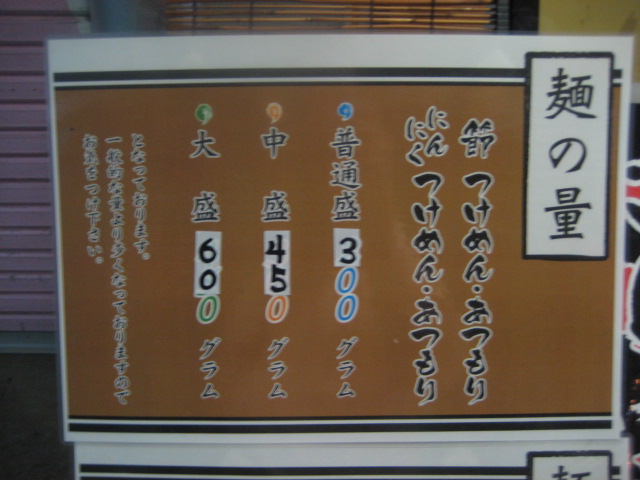 麺の量
節 つけめん・あつもり
にんにく つけめん・あつもり
普通盛 300 グラム
中盛 450 グラム
大盛 600 グラム
となっております。
一般的な量より多くなっておりますので
お気をつけ下さい。